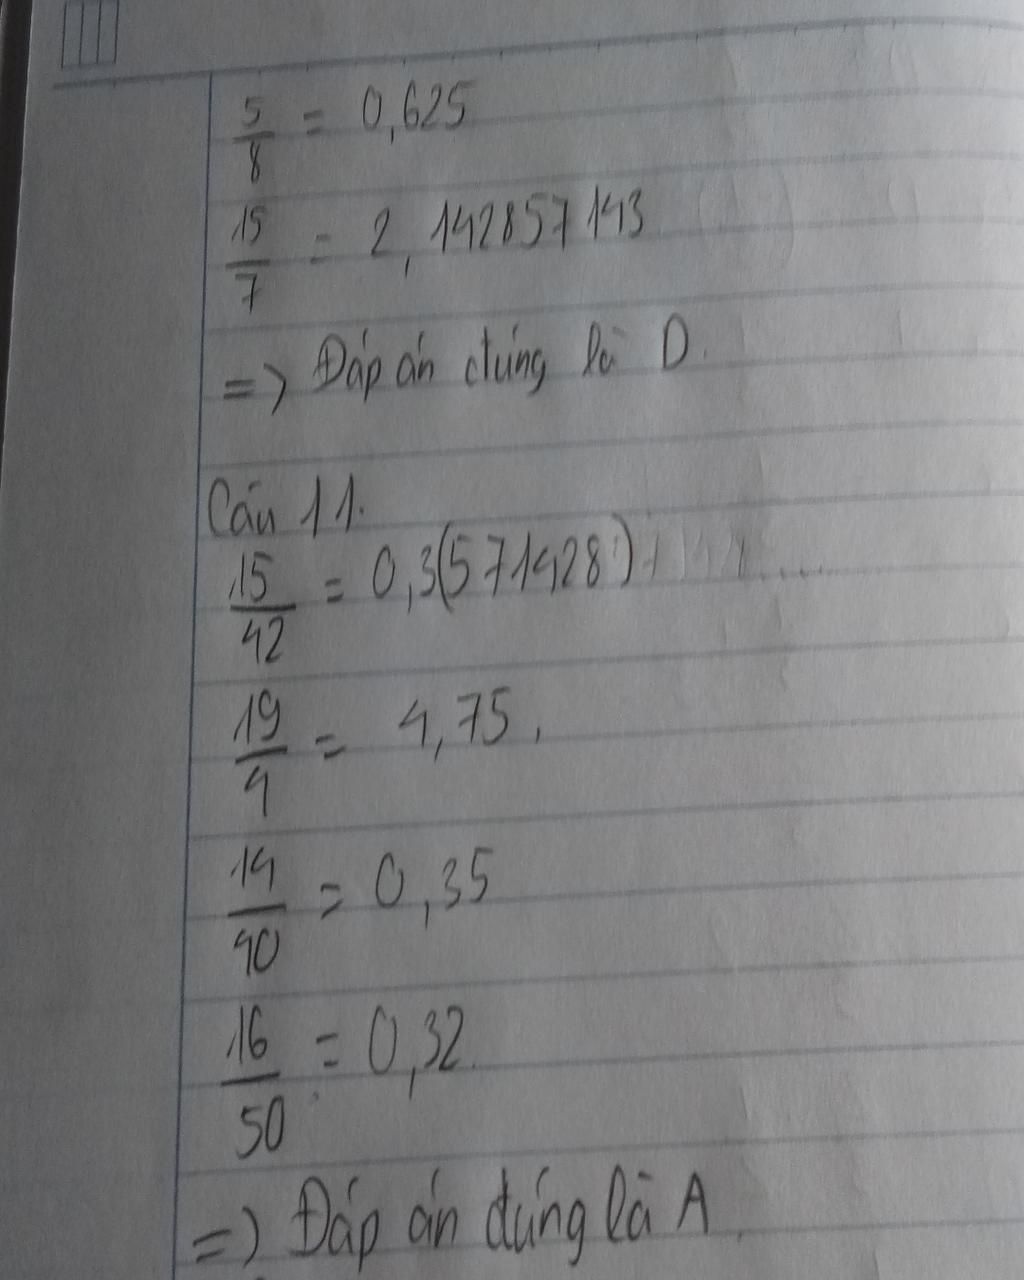 5/8 = 0,625
15/7 = 2,142857143
=> Đáp án đúng là D.
Câu 11.
15/42 = 0,3(571428)
19/4 = 4,75.
14/40 = 0,35
16/50 = 0,32.
=> Đáp án đúng là A